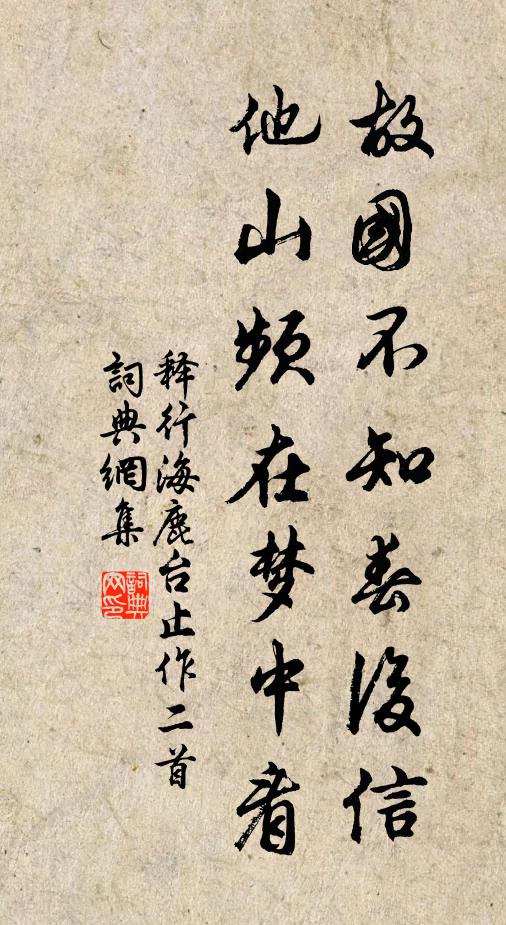 故國不知春後信
他山频在梦中看
释行海鹿台止作二首
詞典網集
詞典
网印